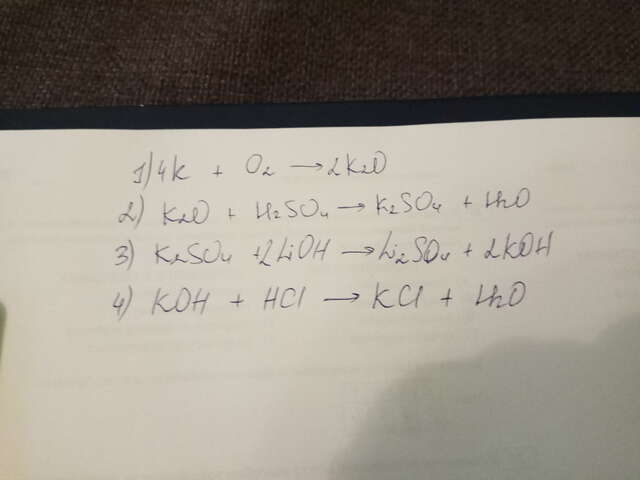 1) 4K + O₂ → 2K₂O
2) K₂O + H₂SO₄ → K₂SO₄ + H₂O
3) K₂SO₄ + 2LiOH → Li₂SO₄ + 2KOH
4) KOH + HCl → KCl + H₂O